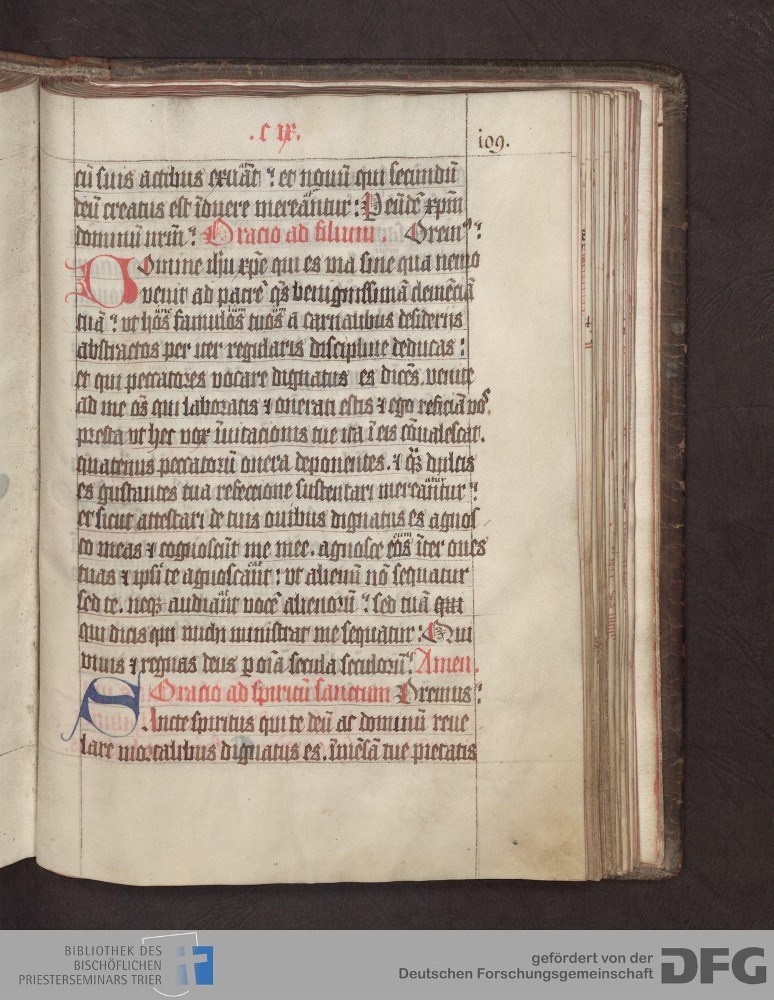 .C IX.
109.
cū suis actibus exuāt ⁊ et nouū qui secundū
deū creatus est īduere mereātur : Per eūdē xp̄m
dominū nr̄m ⁊ Oracio ad filium . Orem⁹ ⁊
Domine ih̄u xp̄e qui es uia sine qua nemo
uenit ad patrē q̄s benignissimā clemēciā
tuā ⁊ ut hos famulos tuos a carnalibus desideriis
abstractos per iter regularis discipline deducas :
et qui peccatores uocare dignatus es dicēs. uenite
ad me oēs qui laboratis ⁊ onerati estis ⁊ ego reficiā uos.
presta ut hec uox īuitacionis tue ita ī eis cōualescat.
quatenus peccatorū onera deponentes. ⁊ q̄ dulcis
es gustantes tua refeccione sustentari mereātur ⁊
et sicut attestari de tuis ouibus dignatus es agnos
co meas ⁊ cognoscūt me mee. agnosce eos īter oues
tuas ⁊ ipsi te agnoscāt : ut alienū nō sequātur
sed te. neq; audiāt uocē alienorū ⁊ sed tuā que
qui dicis qui michi ministrat me sequatur : Qui
uiuis ⁊ regnas deus p oīa secula seculorū ⁊ Amen.
Oracio ad spiritū sanctum Oremus ⁊
Sancte spiritus qui te deū ac dominū reue
lare mortalibus dignatus es. īmēsā tue pietatis
BIBLIOTHEK DES
BISCHÖFLICHEN
PRIESTERSEMINARS TRIER
gefördert von der
Deutschen Forschungsgemeinschaft DFG